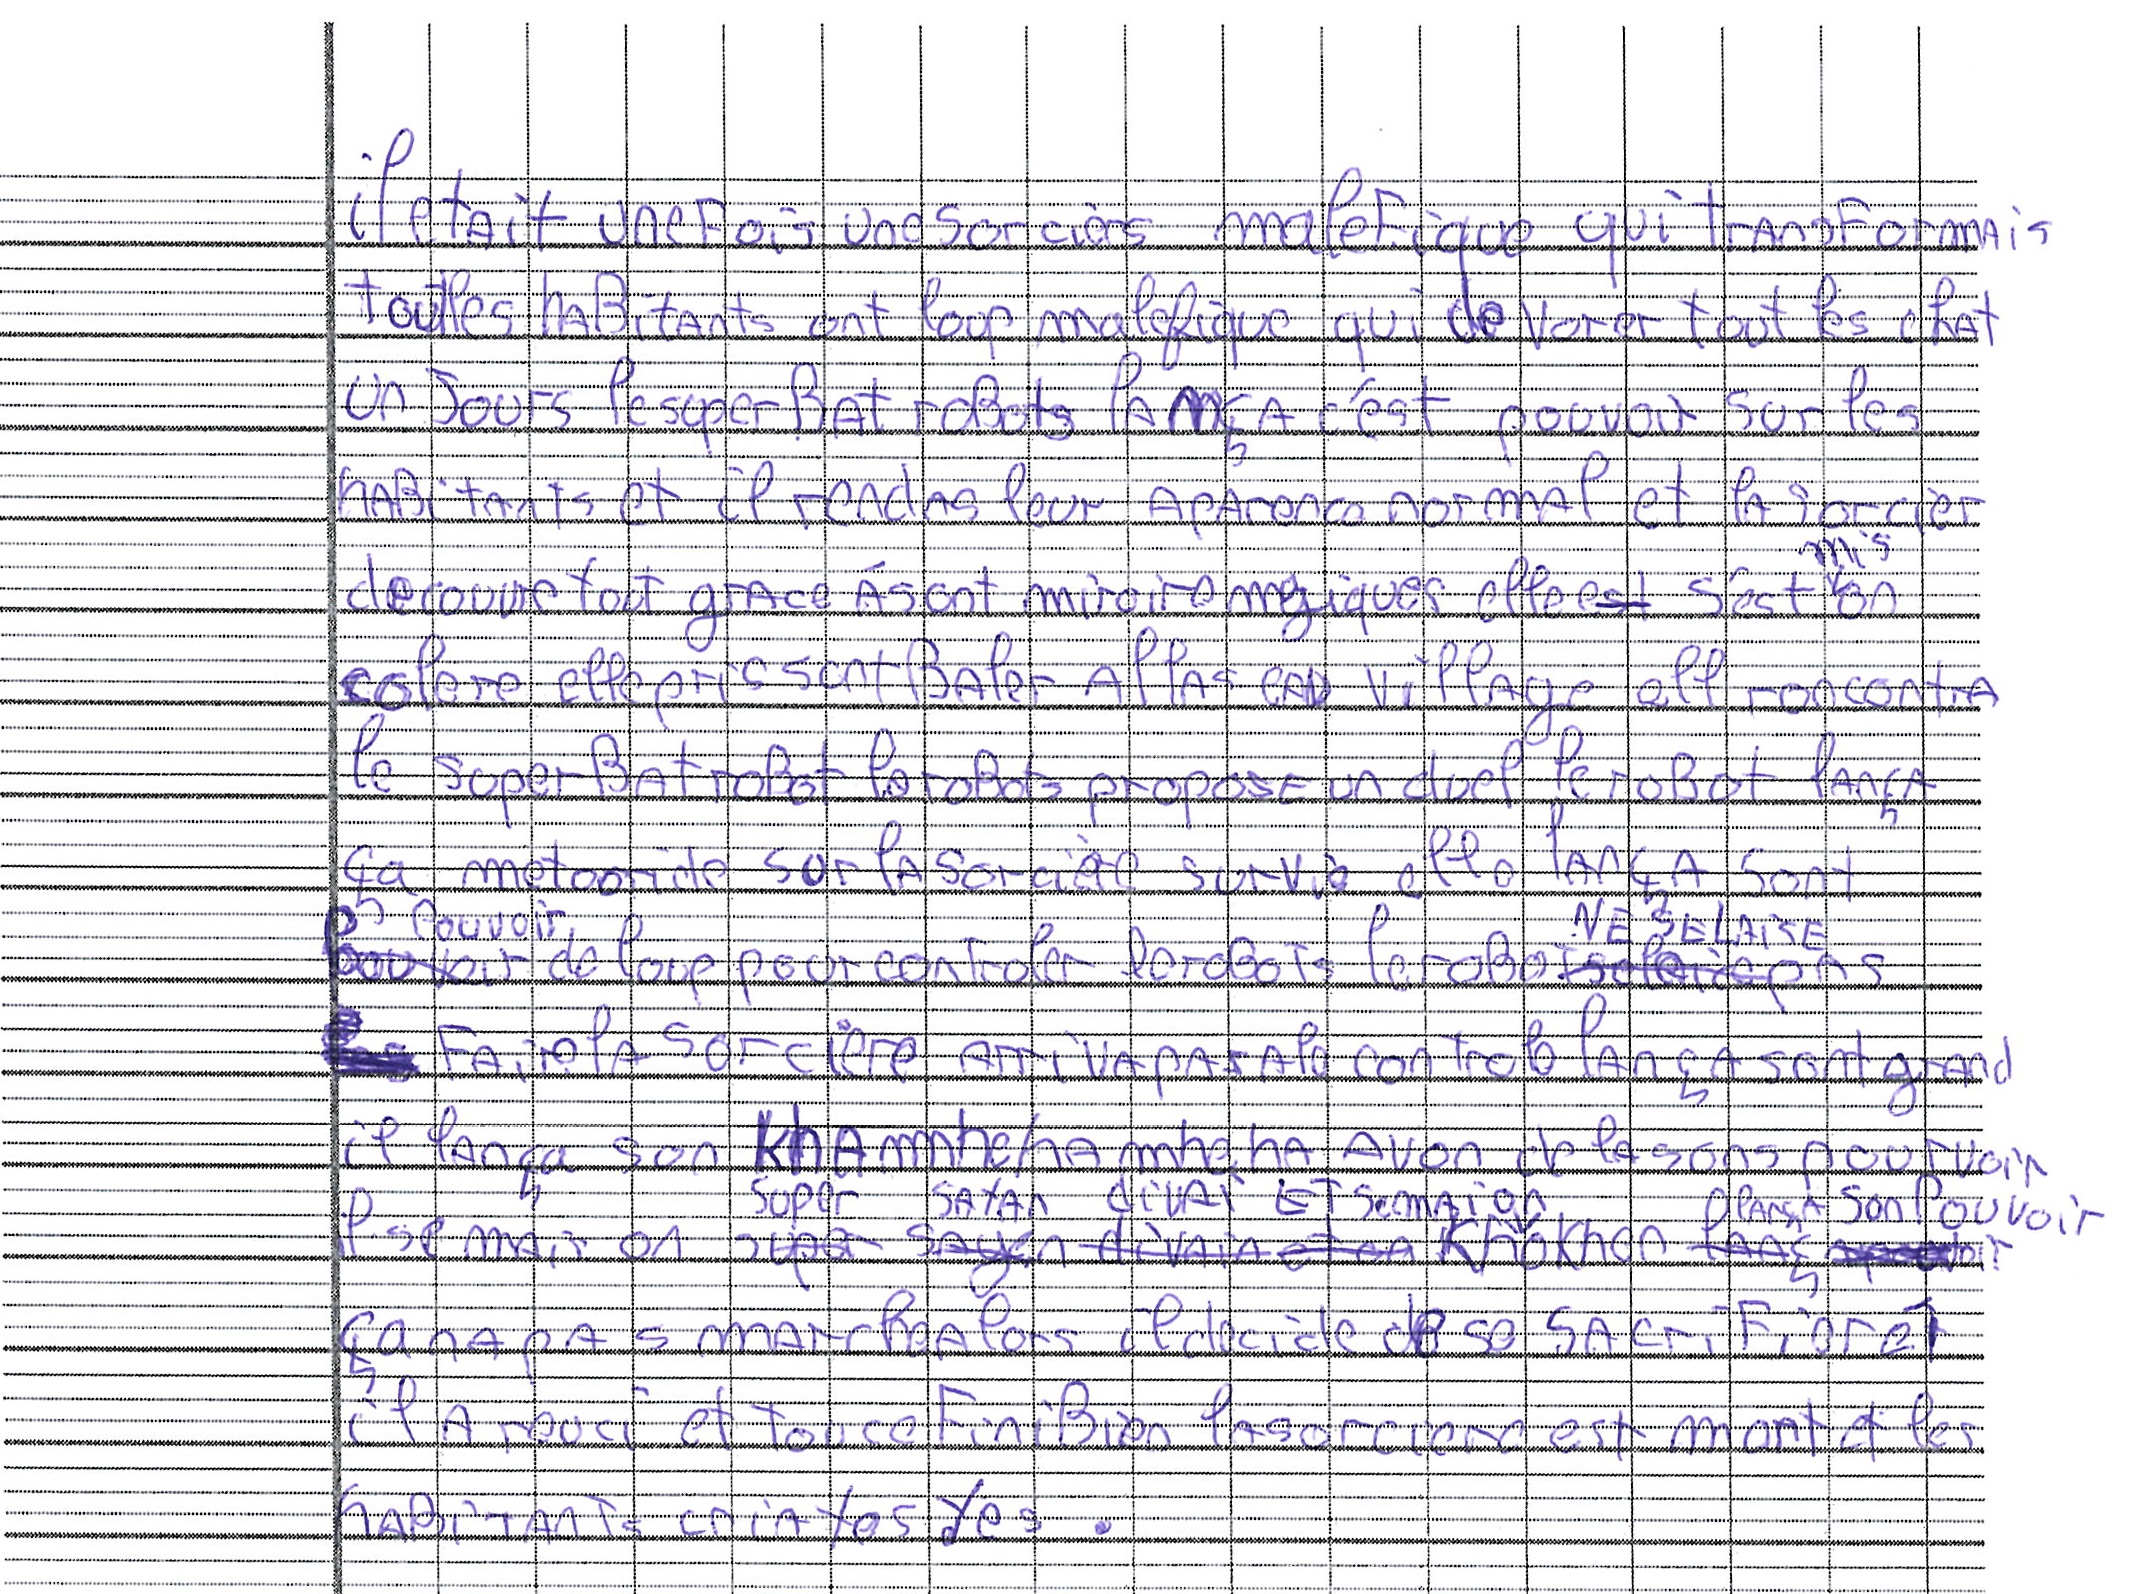 il etait unefois unesorcièrs malefique qui transformais
toutles habitants ont loop malefique qui devorer tout les chat
un Jours lesuperBat roBots lança c'ést pouvoir sur les
haBitants et il rendas leur aparence normal et la sorcièr
decouvre tout grace á sont miroire magiques elle est s'est mis en
colere elle pris sont Baler allas eau village ell rencontra
le superBat roBot le roBots propose un duel le roBot lança
ça meteoride sur la sorcière survie elle lança sont
pouvoir de loup pour controler le roBots le roBot NE SE LAISE pas
Faire la sorcière arriva pas a le controle lança sont grand
il lança son Khamhehamheha avon de la sons pouvoir
il se mair on super SAYAN divai ET Semaion Khokhen lança son Pouvoir
ça na pas marche alors il decide de se sacriFièr et
il a reuci et tou ce Fini Bièn la sorciere est mort et les
haBitants cria Yes Yes .